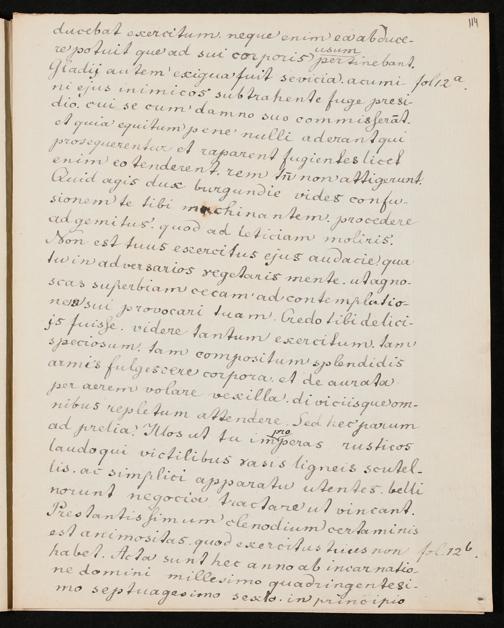 114
ducebat exercitum. neque enim ea abduce-
re potuit que ad sui corporis usum pertinebant.
Gladij autem exigua fuit sevicia. acumi- fol 12 a.
ni ejus inimicos subtrahente fuge presi-
dio. cui se cum damno suo commiserāt.
et quia equitum pene nulli aderant qui
prosequerentur et raparent fugientes licet
enim eo tenderent. rem tn̄ non attigerunt.
Quid agis dux burgundie vides confu-
sionem te tibi machinantem. procedere
ad gemitus. quod ad leticiam moliris.
Non est tuus exercitus ejus audacie qua
tu in adversarios vegetaris mente. ut agno-
scas superbiam cecam ad contemplatio-
nem sui provocari tuam. Credo tibi delici-
js fuisse. videre tantum exercitum. tam
speciosum. tam compositum splendidis
armis fulgescere corpora. et de aurata
per aerem volare vexilla. diviciisque om-
nibus repletum attendere. Sed hec parum
ad prelia. Illos ut tu improperas rusticos
laudoqui victilibus vasis ligneis scutel-
lis. ac simplici apparatu utentes. belli
norunt negocia tractare ut vincant.
Prestantissimum clenodium certaminis
est animositas. quod exercitus tuus non fol. 12 b.
habet. Acta sunt hec anno ab incarnatio-
ne domini millesimo quadringentesi-
mo septuagesimo sexto. in principio